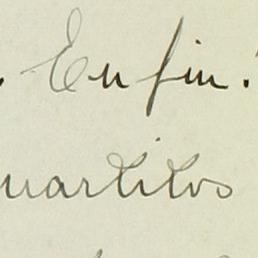 . En fin.
uartitos